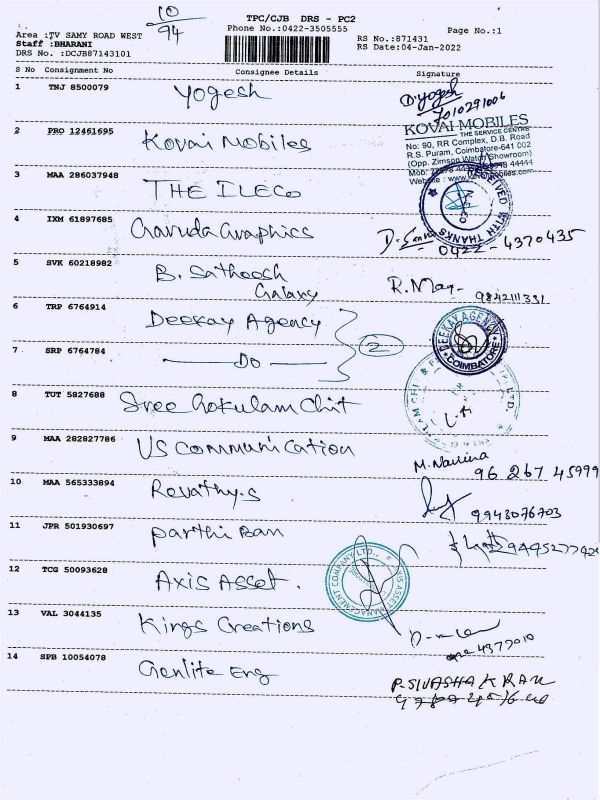 10
94
TPC/CJB DRS - PC2
Phone No.:0422-3505555
Page No.:1
Area :TV SAMY ROAD WEST
Staff :BHARANI
DRS No. :DCJB87143101
RS No.:871431
RS Date:04-Jan-2022
S No Consignment No Consignee Details Signature
1 TNJ 8500079 Yogesh D.Yogesh
7010291006
2 PRO 12461695 Kovai Mobiles
KOVAI MOBILES
THE SERVICE CENTRE
No: 90, RR Complex, D.B. Road
R.S. Puram, Coimbatore-641 002
(Opp. Zimson Watch Showroom)
3 MAA 286037948 THE ILECO
RECEIVED WITH THANKS
4 IXM 61897685 Garuda Graphics
0422-4370435
5 SVK 60218982 B. Sathoosh
Galaxy
R. May-
9842111331
6 TRP 6764914 Deekay Agency
2
DEEKAY AGENCY
COIMBATORE
7 SRP 6764784 Do
8 TUT 5827688 Sree Gokulam Chit
9 MAA 282827786 US Communication
M. Navina
96 267 45999
10 MAA 565333894 Revathy.s
9943076703
11 JPR 501930697 Parthi Ban
12 TCG 50093628 Axis Asset.
AXIS ASSET MANAGEMENT COMPANY LTD.,
13 VAL 3044135 Kings Creations
4377010
14 SPB 10054078 Genlite Eng
P.SIVASHAKRAN